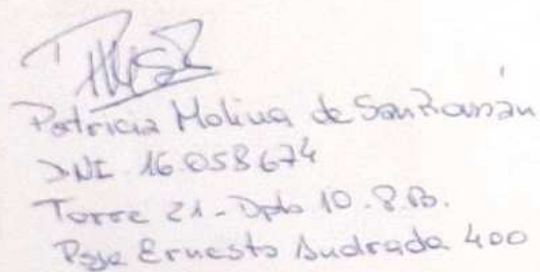 Patricia Molina de San Román
DNI 16.058674
Torre 21 - Dpto 10. 8 B.
Ernesto Andrada 400